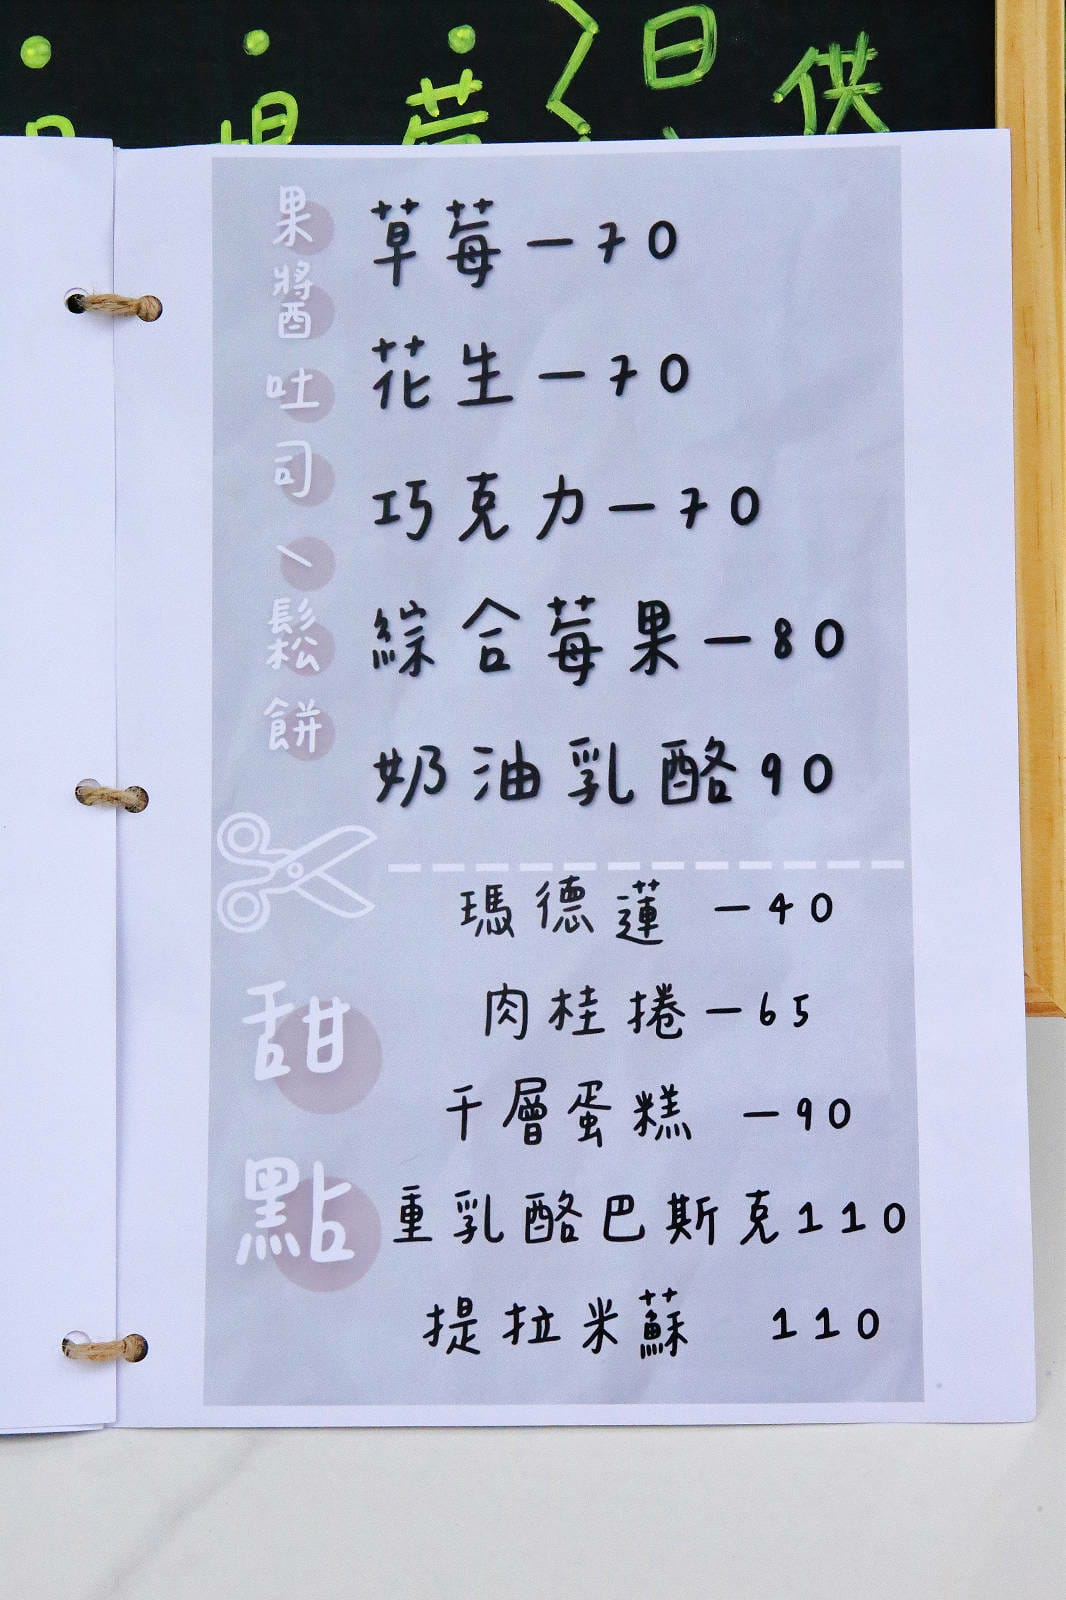 日供
果醬吐司、鬆餅
草莓—70
花生—70
巧克力—70
綜合莓果—80
奶油乳酪90
甜點
瑪德蓮 —40
肉桂捲—65
千層蛋糕 —90
重乳酪巴斯克110
提拉米蘇 110